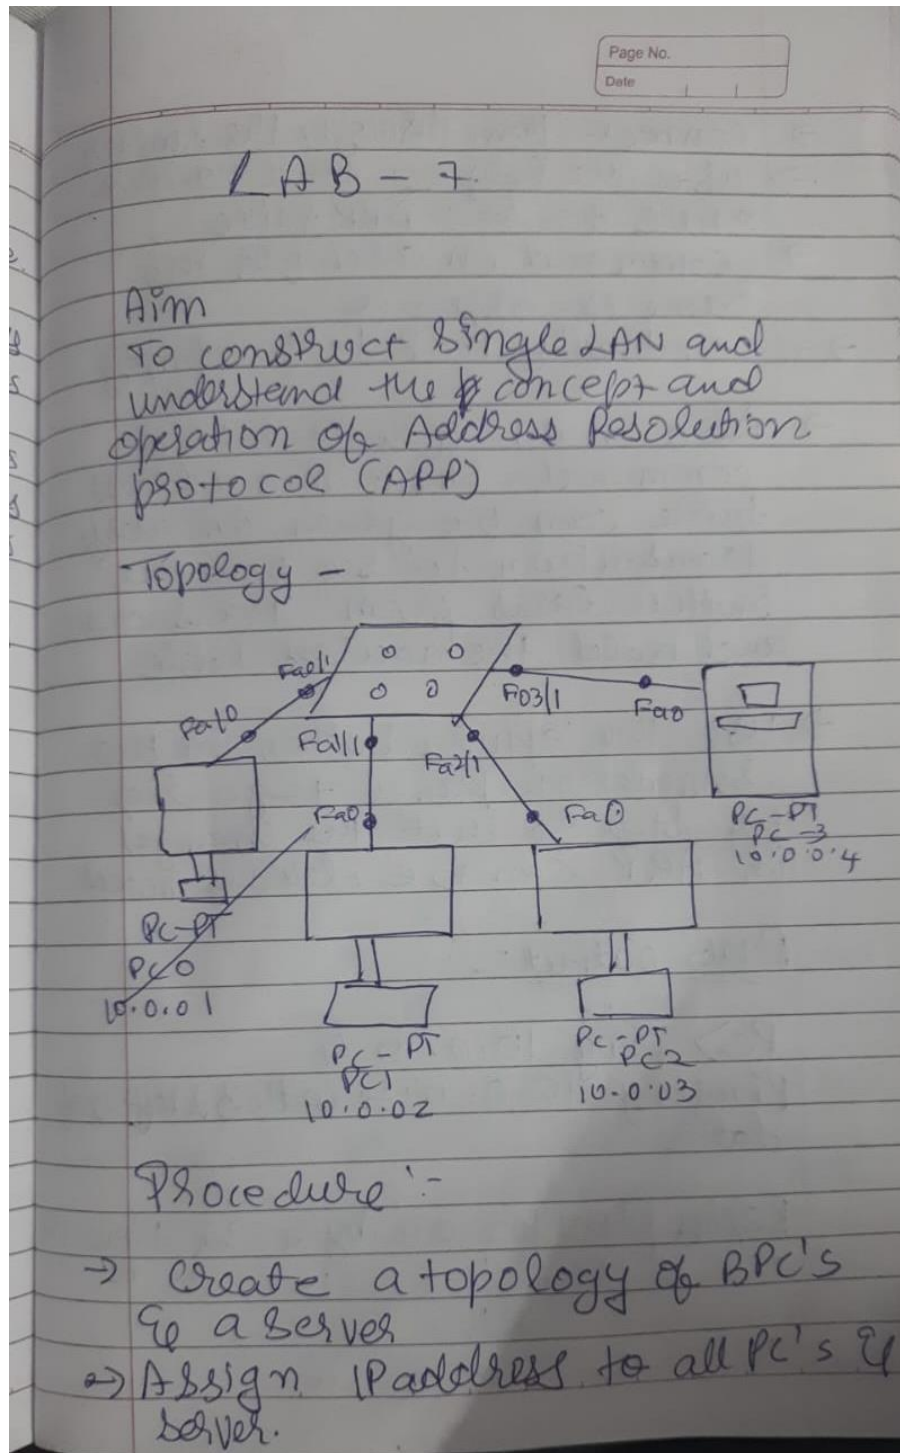 Page No.
Date
LAB - 7
Aim
To construct single LAN and
understand the concept and
operation of Address Resolution
protocol (ARP)
Topology -
Fa0/1
Fa/0
Fa1/1
Fa0
Fa2/1
Fa0
F03/1
Fa0
PC-PT
PC0
10.0.01
PC-PT
PC1
10.0.02
PC-PT
PC2
10.0.03
PC-PT
PC-3
10.0.0.4
Procedure :-
→ Create a topology of 3PC's
& a server
→ Assign IP address to all PC's &
server.